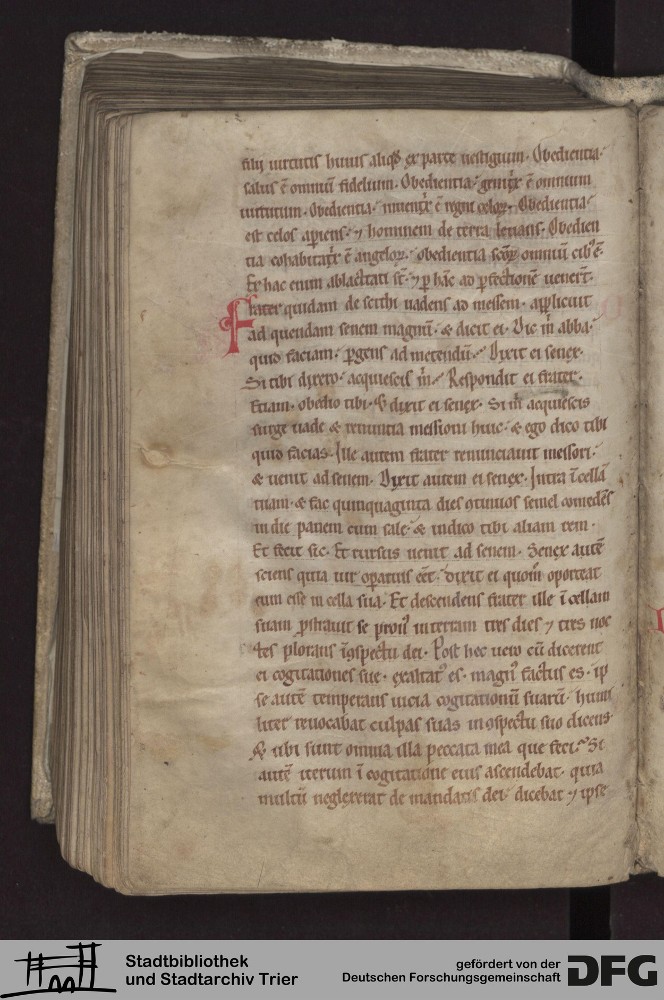 filii uirtutis huius aliqd̄ ex parte uestigium. Obedientia.
salus ē omniū fidelium. Obedientia. genitͥx ē omnium
uirtutum. Obedientia. inuentͥx ē regni celoꝝ. Obedientia
est celos aperiens. ⁊ hominem de terra leuans. Obedien
tia cohabitatͥx ē angeloꝝ. obedientia scōꝝ omniū cib᷒ ē.
Ex hac enim ablactati st̄. ⁊ ꝑ hāc ad ꝑfectionē uenert̄.
Frater quidam de scithi uadens ad messem. applicuit
ad quendam senem magnū. & dicit ei. Dic m̄ abba.
quid faciam. ꝑgens ad metendū. Dixit ei senex.
Si tibi dixero. acquiescis m̄. Respondit ei frater.
Etiam. obedio tibi. & dixit ei senex. Si m̄ acquiescis
surge uade & renuntia messioni huic. & ego dico tibi
quid facias. Ille autem frater renunciauit messori.
& uenit ad senem. Dixit autem ei senex. Intra ī cellā
tuam. & fac quinquaginta dies ꝯtinuos semel comedēs
in die panem cum sale. & indico tibi aliam rem.
Et fecit sic. Et rursus uenit ad senem. Senex autē
sciens quia uir operatius eēt. dixit ei quom̄ oporteat
eum esse in cella sua. Et descendens frater ille ī cellam
suam ꝓstrauit se pron᷒ in terram tres dies ⁊ tres noc
tes plorans īꝯspectu dei. Post hec uero cū dicerent
ei cogitationes sue. exaltat᷒ es. magn᷒ factus es. ip
se autē temperans uicia cogitationū suarū. humi
liter reuocabat culpas suas inꝯspectu suo dicens
& ubi sunt omnia illa peccata mea que feci. Si
autē iterum ī cogitatione eius ascendebat. quia
multū neglexerat de mandatis dei. dicebat ⁊ ipse
Stadtbibliothek
und Stadtarchiv Trier
gefördert von der
Deutschen Forschungsgemeinschaft
DFG